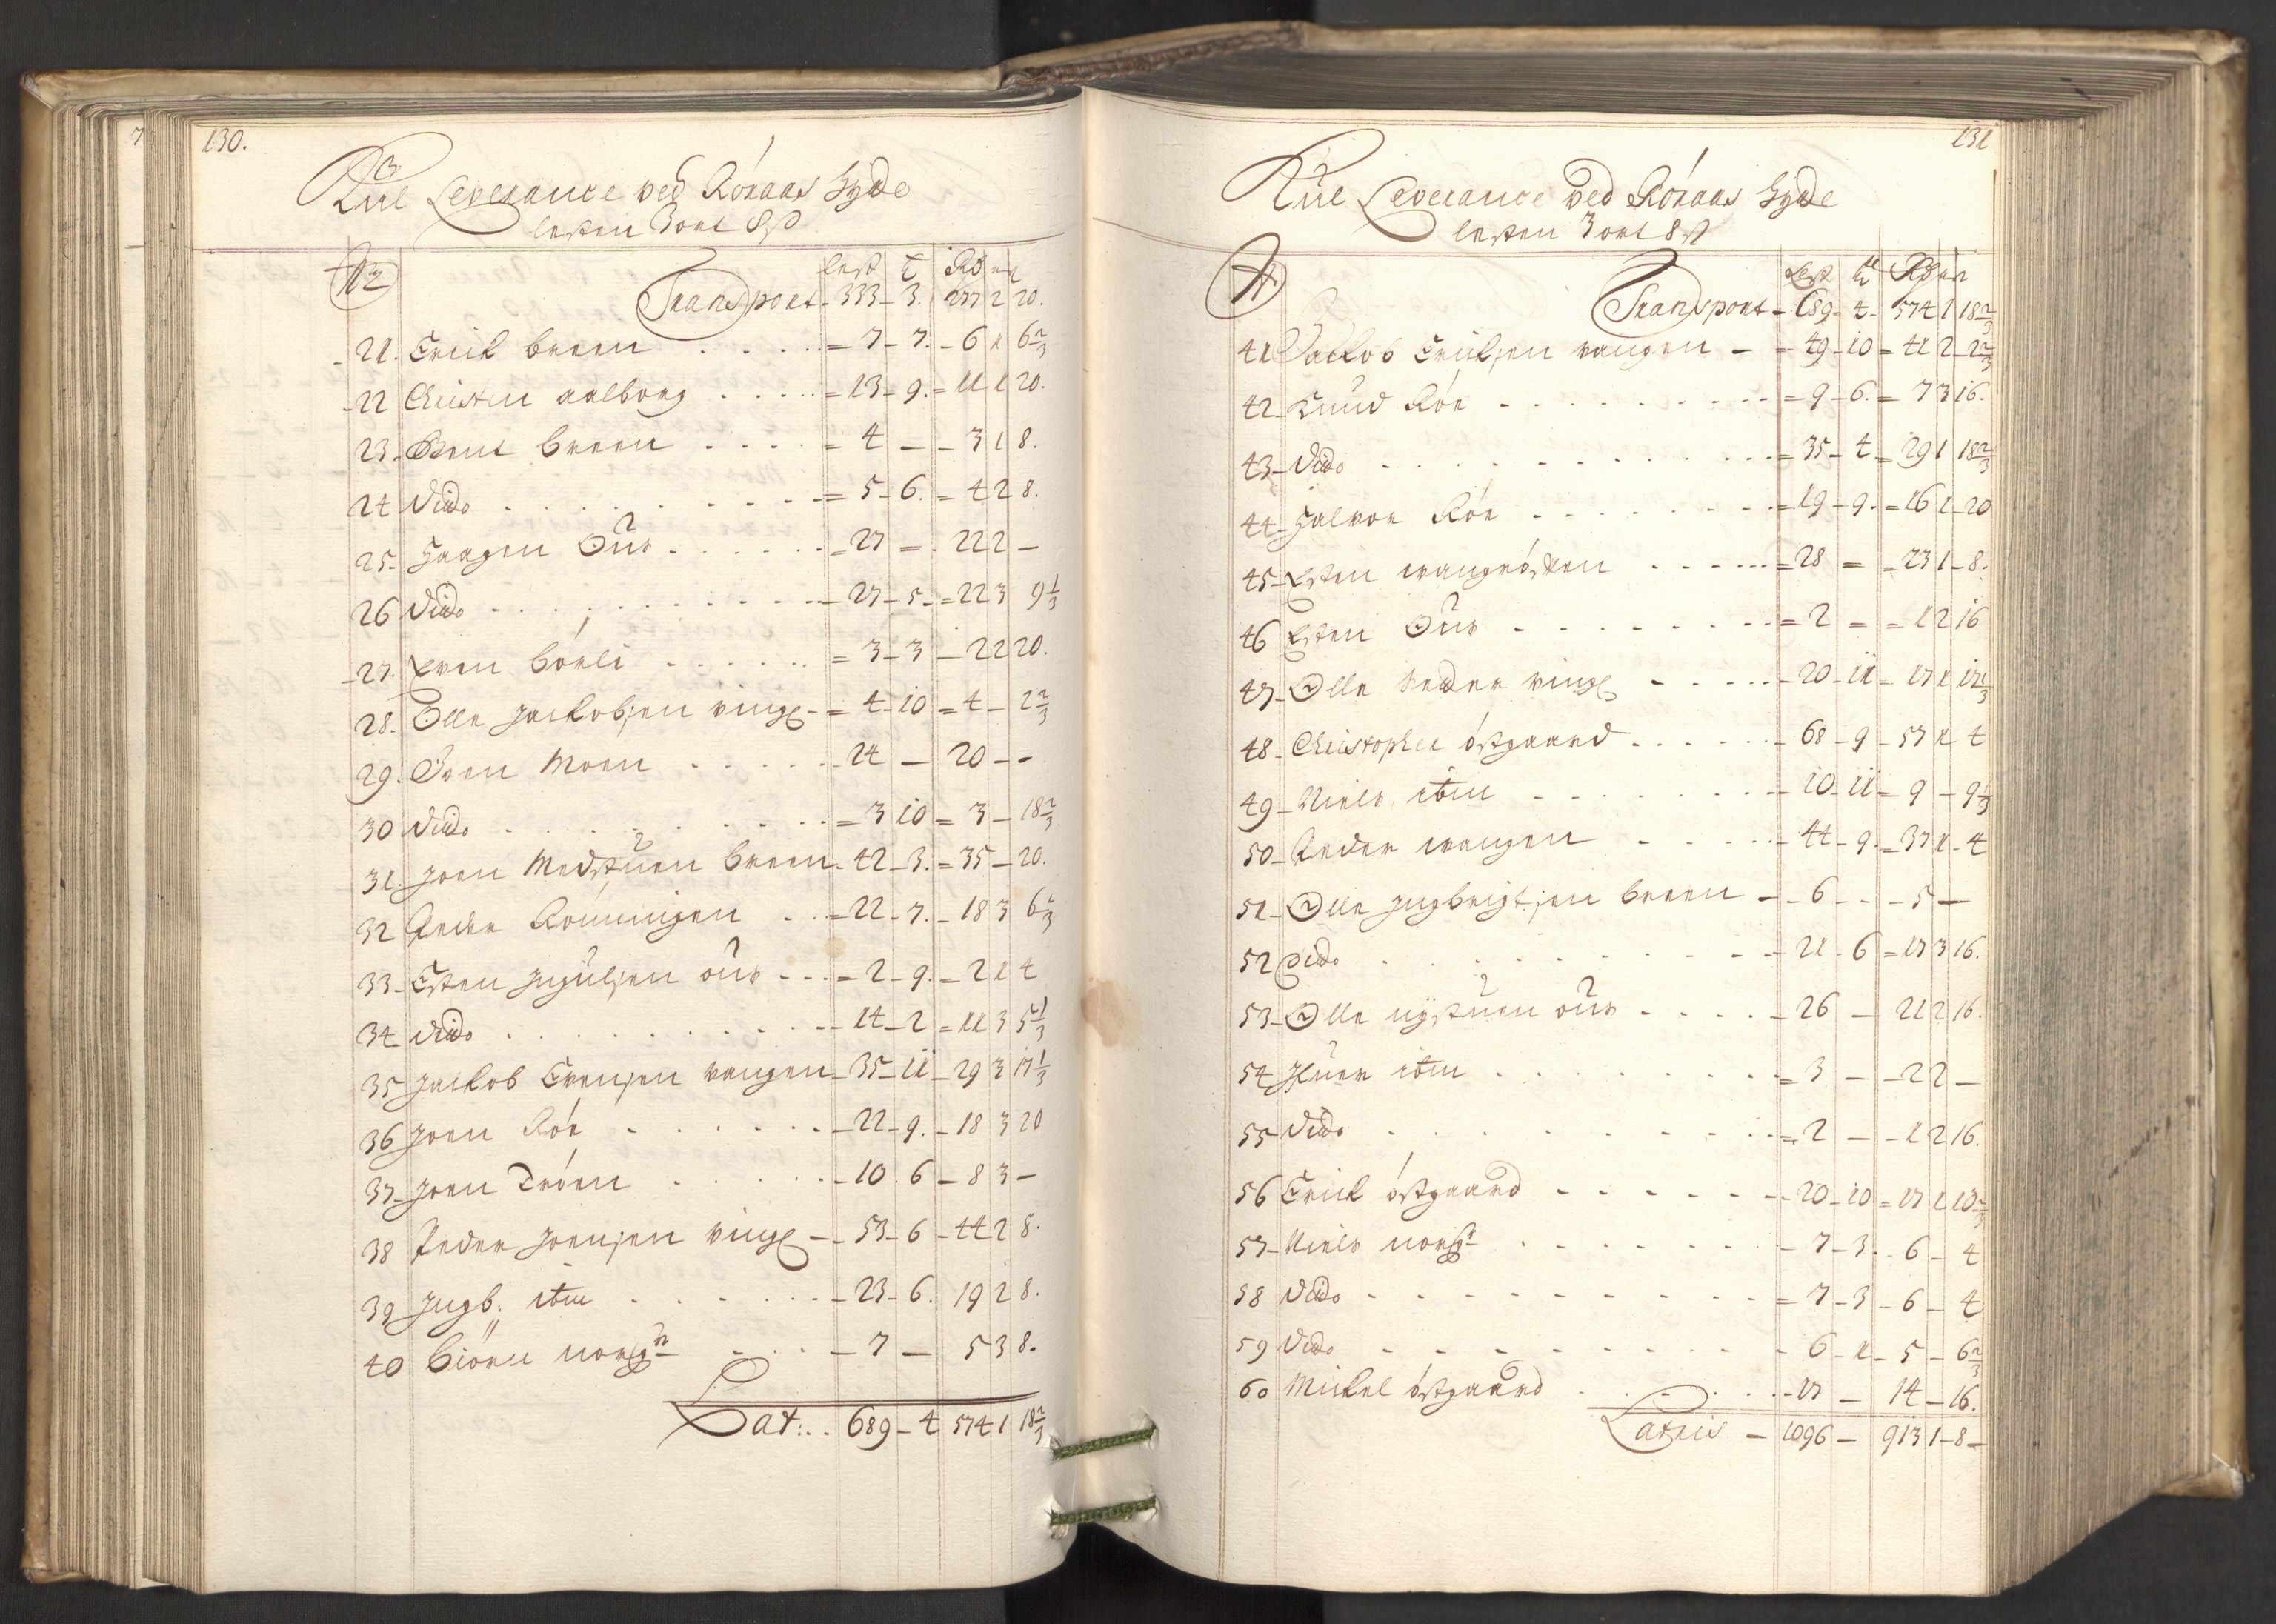 130.
Kul Leverance ved Röraas Hyde
lesten 3 ort 8 s
No lest t Rd ort
Transport - 333 - 3. 277 2 20.
21. Erick breen - 7 - 7. - 6 1 6 2/3
22 Christen aalborg - 13 - 9. - 11 1 20.
23. Bent breen - 4 - - 3 1 8.
24 dido - 5 - 6. - 4 2 8.
25. Haagen Ous - 27 - 22 2 -
26 dido - 27 - 5 - 22 3 9 1/3
27. Even börli - 3 - 3 - 2 2 20.
28. Olle Jackobsen vinge - 4 - 10 - 4 - 2 2/3
29. Joen Moen - 24 - 20 - -
30 dido - 3 10 - 3 - 18 2/3
31. Joen Medstuen breen - 42 - 3. - 35 - 20.
32 Peder Rönningen - 22 - 7. - 18 3 6 2/3
33. Esten Ingulsen ous - 2 - 9. - 2 1 4
34 dido - 14 - 2 - 11 3 5 1/3
35 Jackob Evensen vangen - 35 - 11 - 29 3 17 1/3
36 Joen Röe - 22 - 9. - 18 3 20
37 Joen Tröen - 10. 6 - 8 3 -
38 Peder Joensen vinge - 53 - 6 - 44 2 8.
39 Ingb: itm - 23 - 6. 19 2 8.
40 biörn norsgn - 7 - 5 3 8.
Lat:. 689 - 4 574 1 18 2/3
131
Kul Leverance ved Röraas Hyde
lesten 3 ort 8 s
N Lest t Rd ort
Transport - 689 - 4 - 574 1 18 2/3
41 Jackob Ericksen vangen - 49 - 10 - 41 2 - 2 2/3
42 Knud Röe - 9 - 6. - 7 3 16.
43 dido - 35 - 4 - 29 1 18 2/3
44 Halvor Röe - 19 - 9. - 16 1 - 20
45 Esten vangrösten - 28 - - 23 1 - 8.
46 Esten Ous - 2 - - 1 2 16
47 Olle Peder vinge - 20 - 11 - 17 1 17 1/3
48 Christopher östgaard - 68 - 9 - 57 1 4
49 Niels itm - 10 - 11 - 9 - 9 1/3
50 Peder vangen - 44 - 9. - 37 1 - 4
51 Olle Ingbrigtsen breen - 6 - - 5 -
52 dido - 21 - 6 - 17 3 16.
53 Olle nÿstuen ous - 26 - 21 2 16.
54 Iver itm - 3 - - 2 2 -
55 dido - 2 - - 1 2 16.
56 Erick östgaard - 20 - 10 - 17 1 10 2/3
57 Niels norsgn - 7 - 3. - 6 - 4
58 dido - 7 - 3 - 6 - 4
59 dido - 6 - 1 - 5 - 6 2/3
60 Mickel östgaard - 17 - 14 - 16.
Lateris - 1096 - 913 1 - 8 -